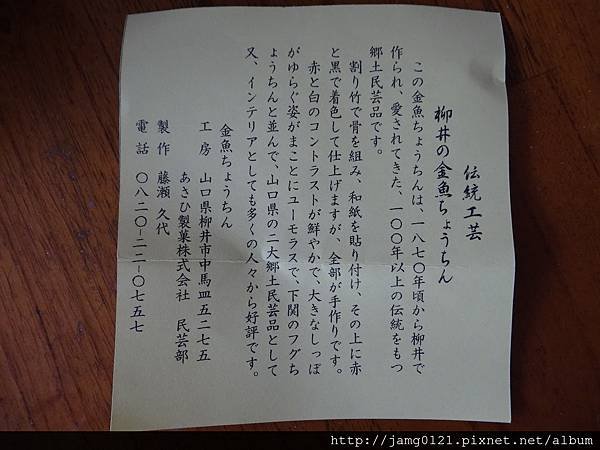 伝統工芸
柳井の金魚ちょうちん
この金魚ちょうちんは、一八七〇年頃から柳井で
作られ、愛されてきた、一〇〇年以上の伝統をもつ
郷土民芸品です。
割り竹で骨を組み、和紙を貼り付け、その上に赤
と黒で着色して仕上げますが、全部が手作りです。
赤と白のコントラストが鮮やかで、大きなしっぽ
がゆらぐ姿がまことにユーモラスで、下関のフグち
ょうちんと並んで、山口県の二大郷土民芸品として
又、インテリアとしても多くの人々から好評です。
金魚ちょうちん
工房 山口県柳井市中馬皿五二七五
あさひ製菓株式会社 民芸部
製作 藤瀬 久代
電話 〇八二〇-二二-〇七五七
http://jamg0121.pixnet.net/album